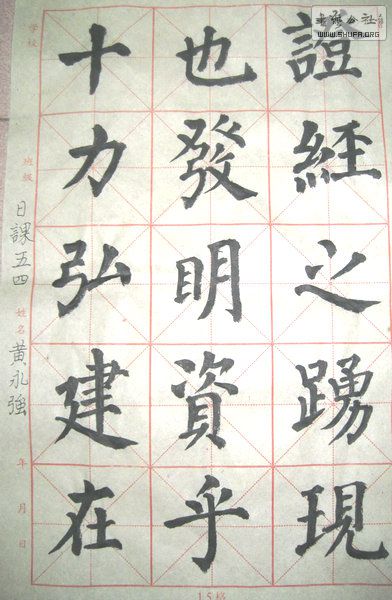 證經之踴現
也發明資乎
十力弘建在
日課五四
黃永強
学校
班级
姓名
年 月 日
15格
书法公社
WWW.SHUFA.ORG